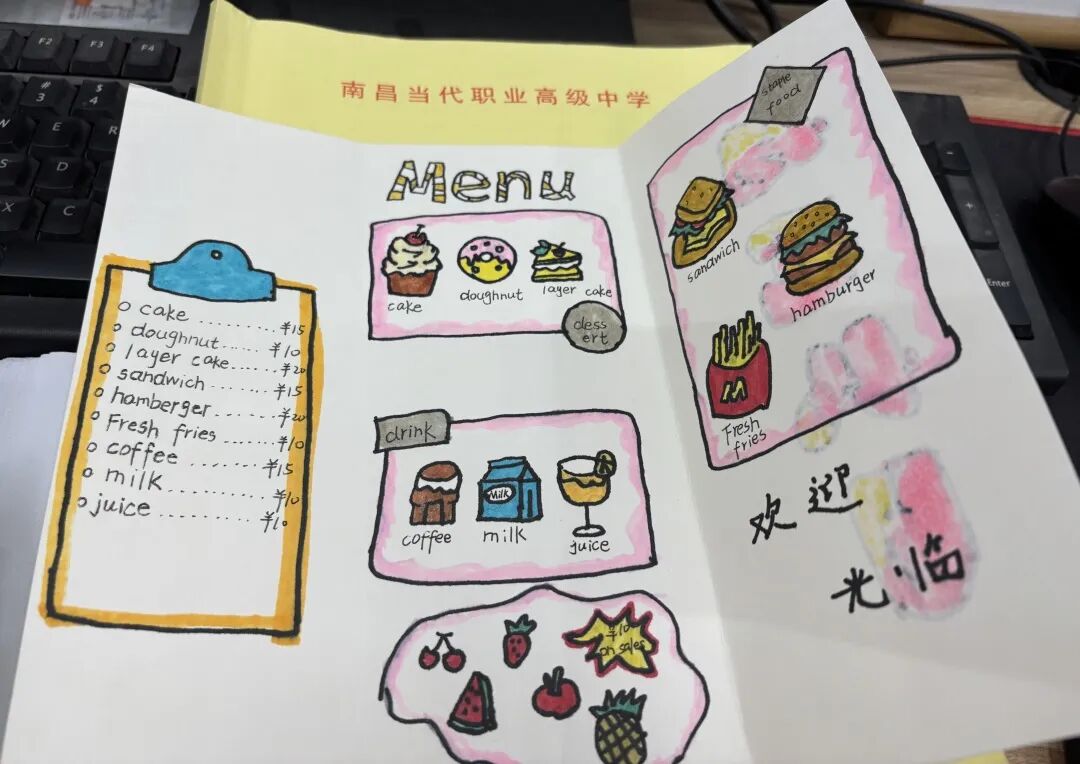 F2
F3
F4
#
3
$
4
W
E
S
D
X
C
Enter
南昌当代职业高级中学
Menu
cake
doughnut
layer cake
dessert
drink
coffee
Milk
milk
juice
¥10
on sales
cake ......... ¥15
doughnut...... ¥10
layer cake..... ¥20
sandwich ....... ¥15
hamberger....... ¥20
Fresh fries ...... ¥10
coffee ........ ¥15
milk.......... ¥10
juice .......... ¥10
staple
food
sandwich
hamburger
M
Fresh
fries
欢迎
光临